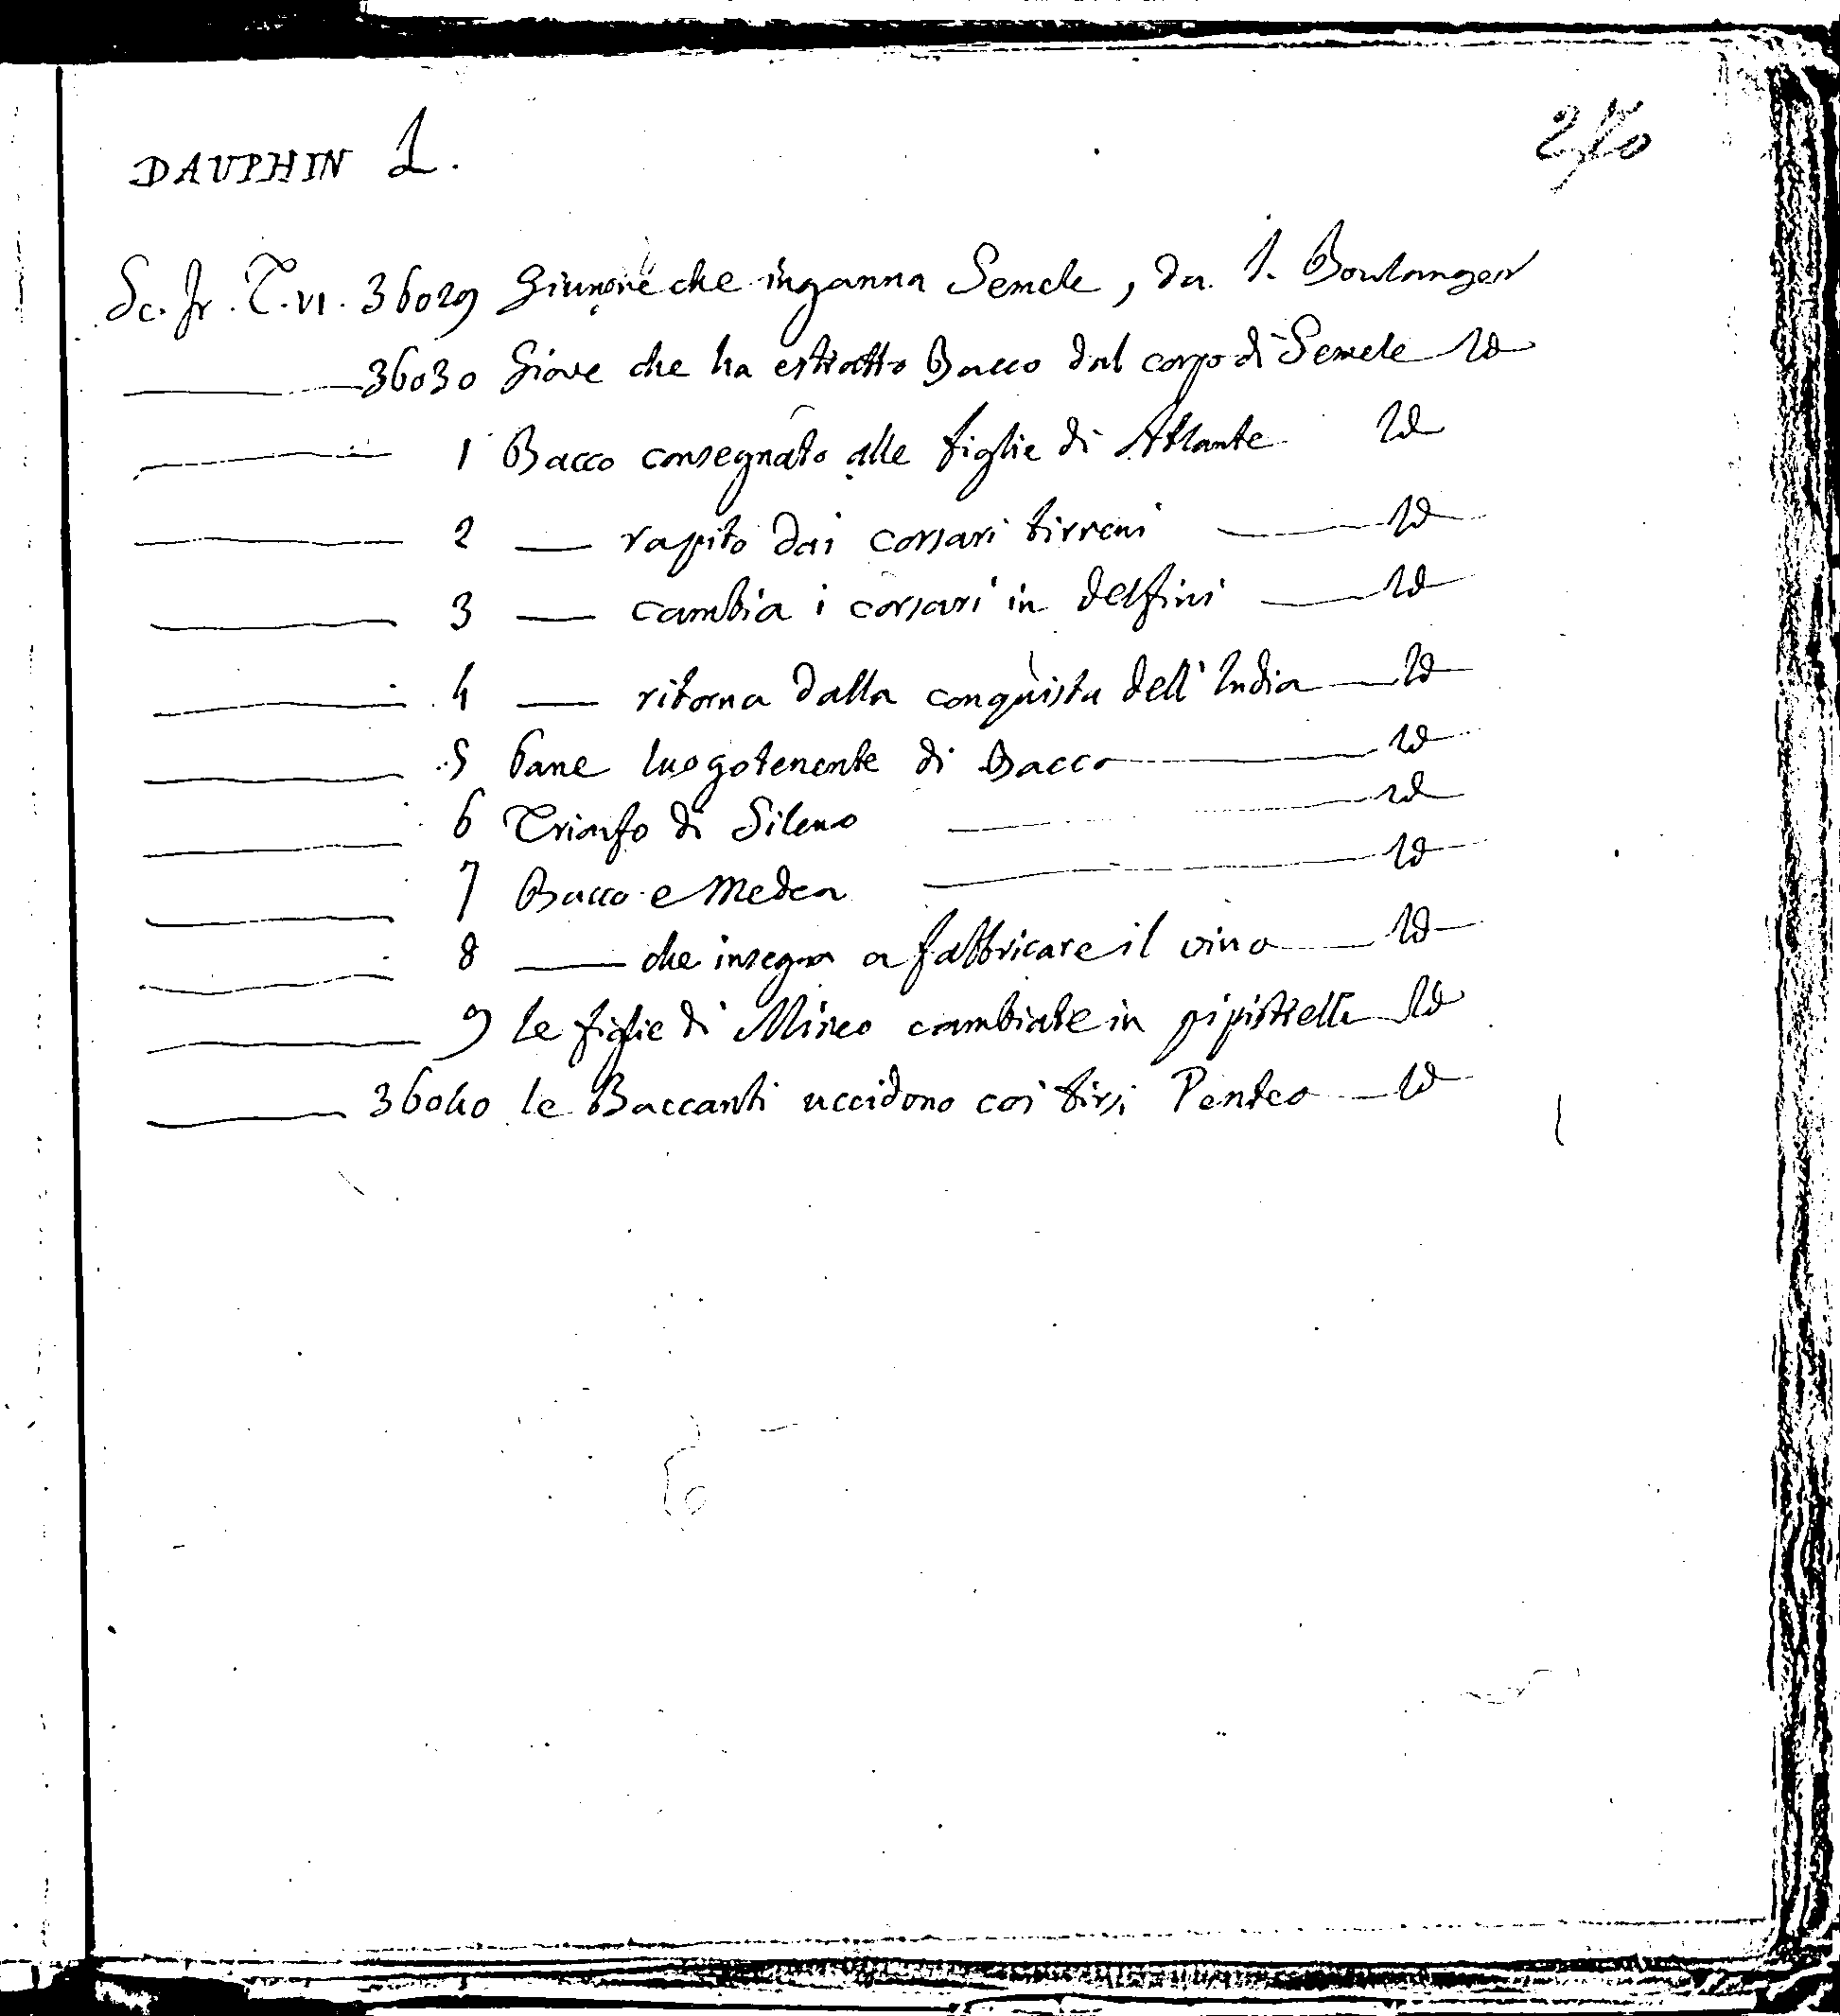 DAUPHIN L.
Sc. fr. T. VI. 36029 Giunone che inganna Semele, da I. Boulanger
36030 Giove che ha estratto Bacco dal corpo di Semele Id
1 Bacco consegnato alle figlie di Atlante Id
2 — rapito dai corsari tirreni — Id
3 — cambia i corsari in delfini — Id
4 — ritorna dalla conquista dell'India — Id
5 Pane luogotenente di Bacco — Id
6 Trionfo di Sileno — Id
7 Bacco e Medea — Id
8 — che insegna a fabbricare il vino — Id
9 le figlie di Mineo cambiate in pipistrelli Id
36040 le Baccanti uccidono coi tirsi Penteo — Id